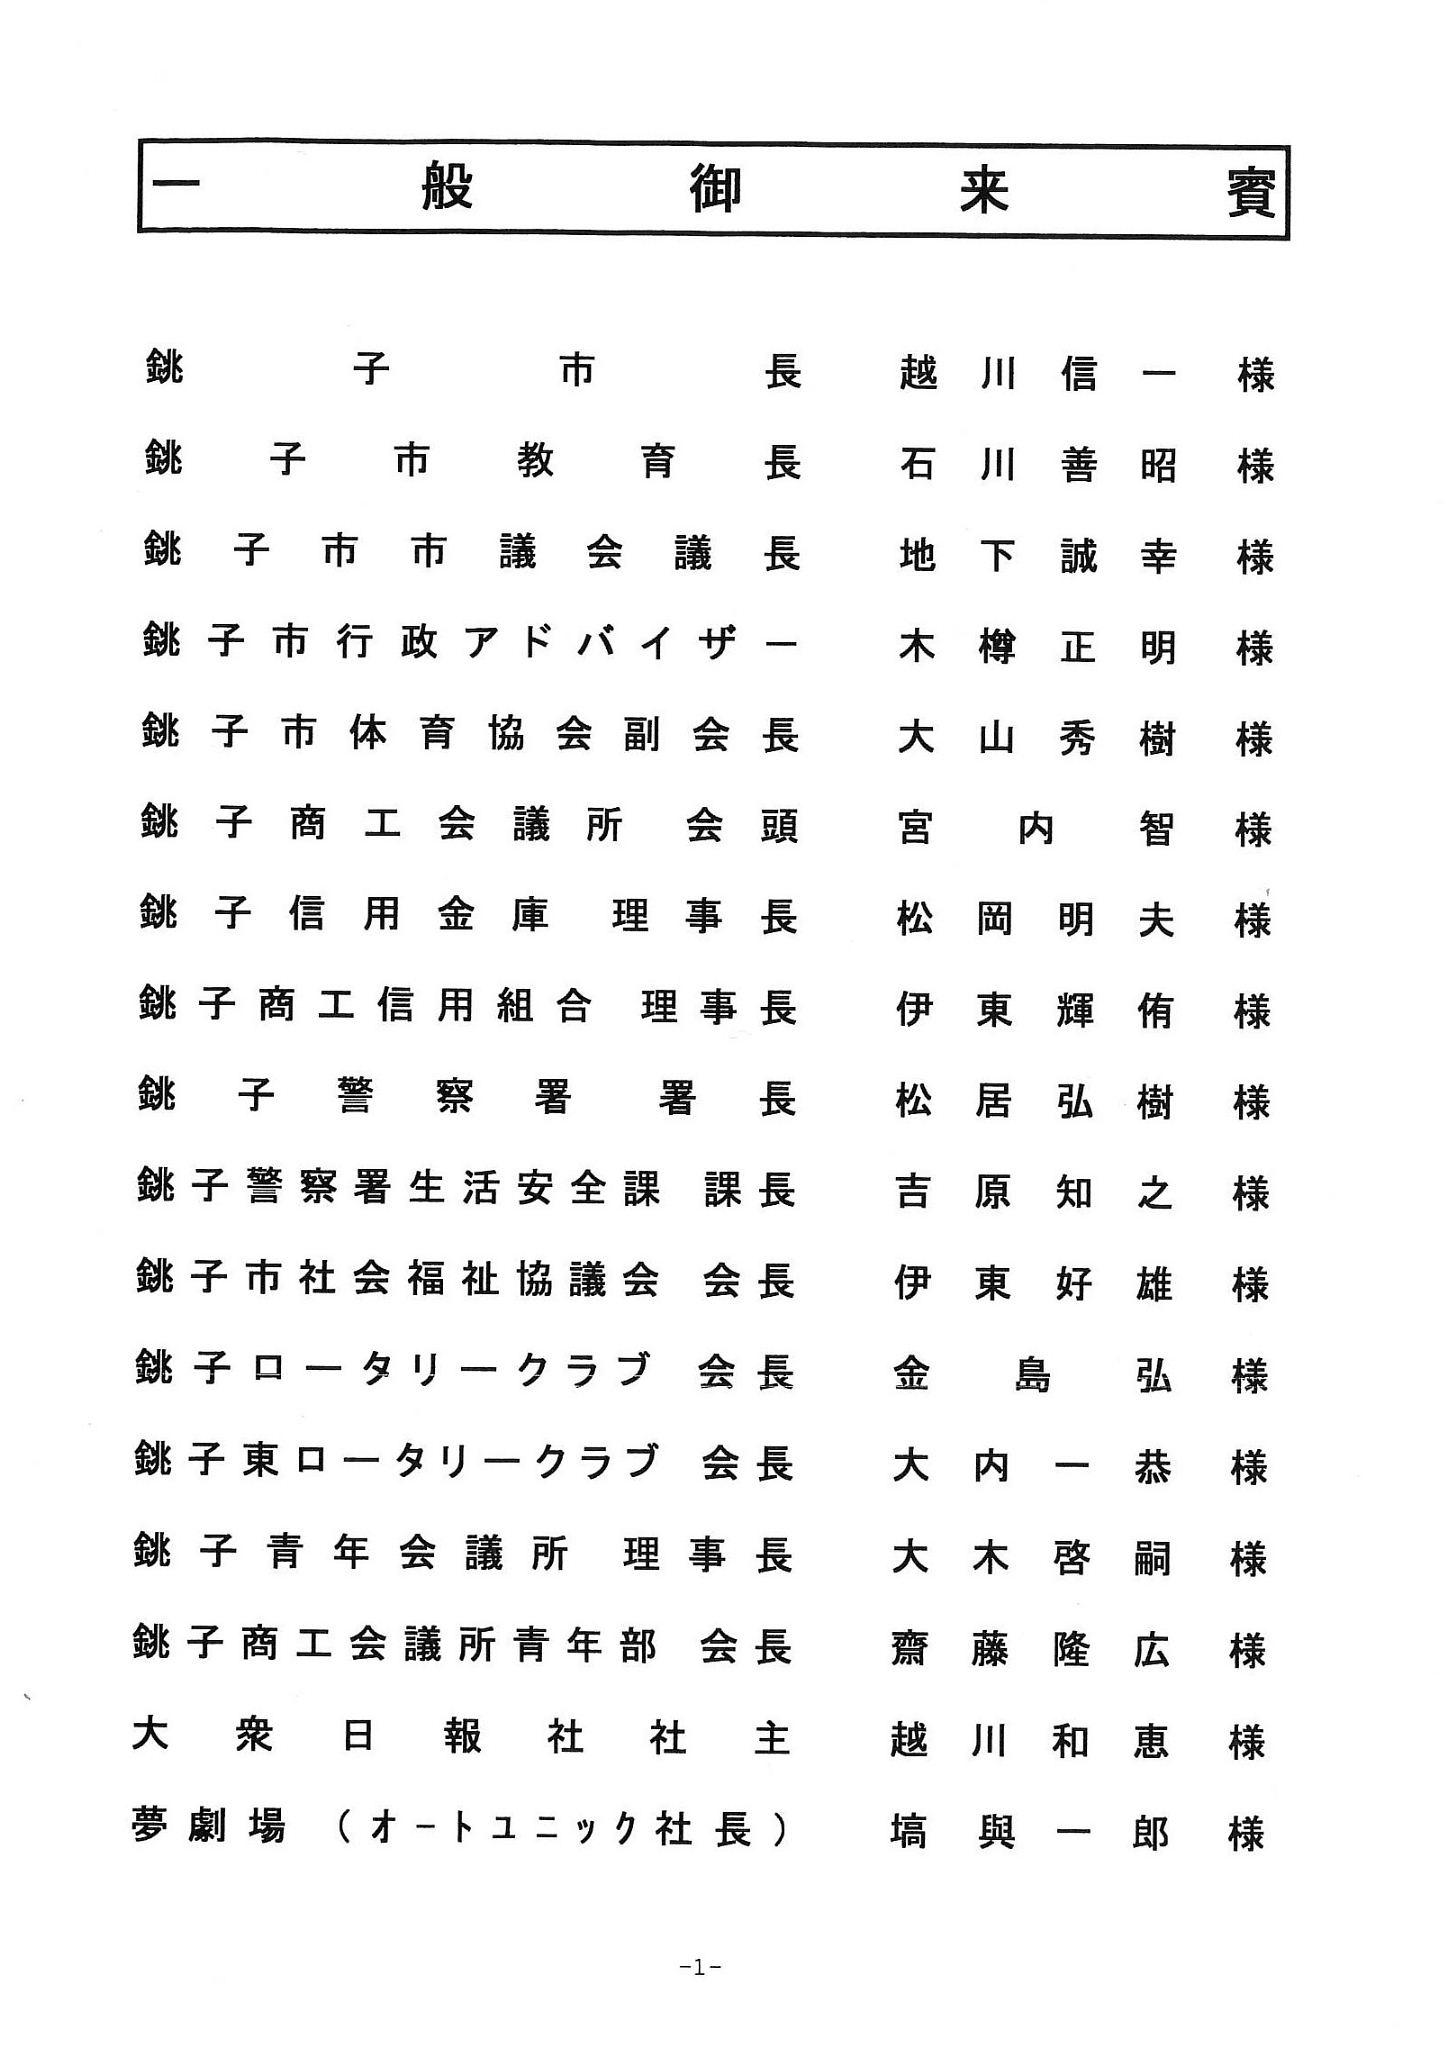 一般御来賓
銚子市長 越川信一 様
銚子市教育長 石川善昭 様
銚子市市議会議長 地下誠幸 様
銚子市行政アドバイザー 木樽正明 様
銚子市体育協会副会長 大山秀樹 様
銚子商工会議所 会頭 宮内智 様
銚子信用金庫 理事長 松岡明夫 様
銚子商工信用組合 理事長 伊東輝侑 様
銚子警察署 署長 松居弘樹 様
銚子警察署生活安全課 課長 吉原知之 様
銚子市社会福祉協議会 会長 伊東好雄 様
銚子ロータリークラブ 会長 金島弘 様
銚子東ロータリークラブ 会長 大内一恭 様
銚子青年会議所 理事長 大木啓嗣 様
銚子商工会議所青年部 会長 齋藤隆広 様
大衆日報社社主 越川和恵 様
夢劇場（オートユニック社長） 塙與一郎 様
-1-